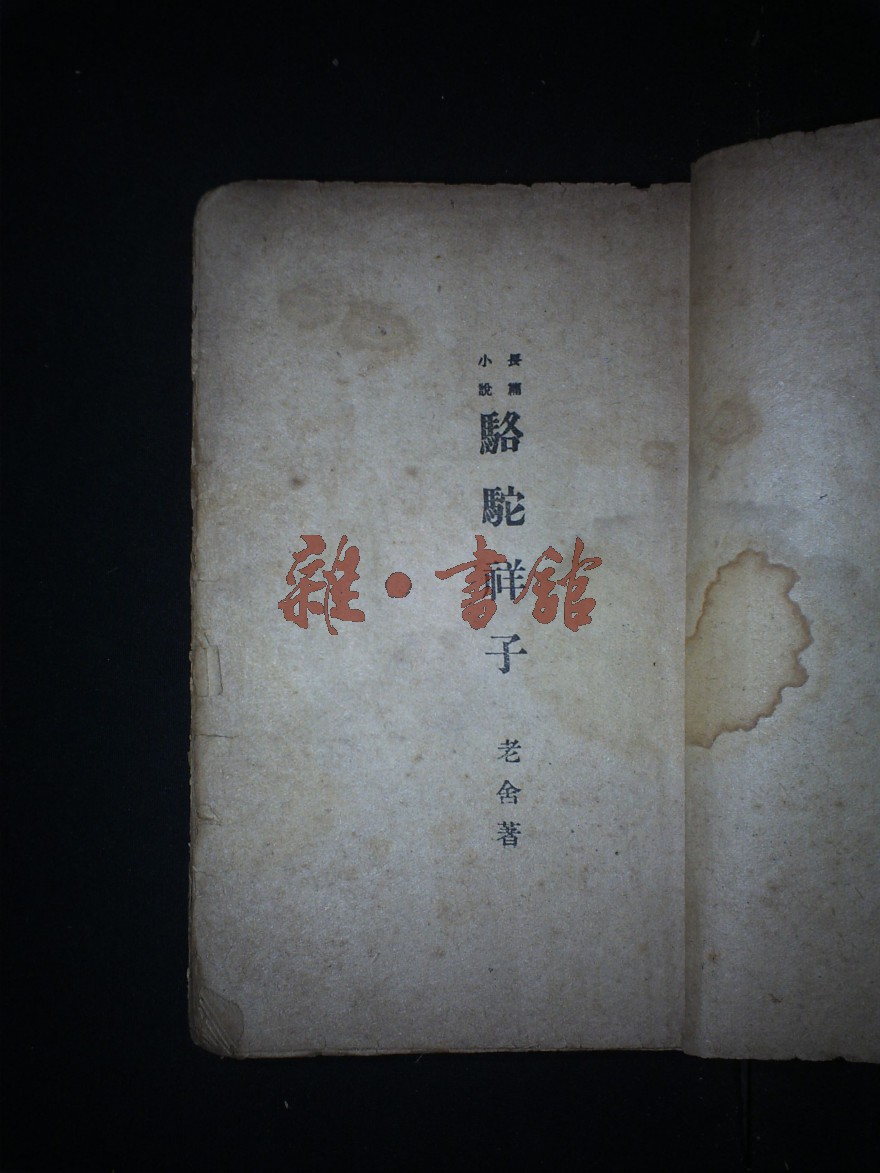 長篇
小說
駱駝祥子
老舍著
雜·書館